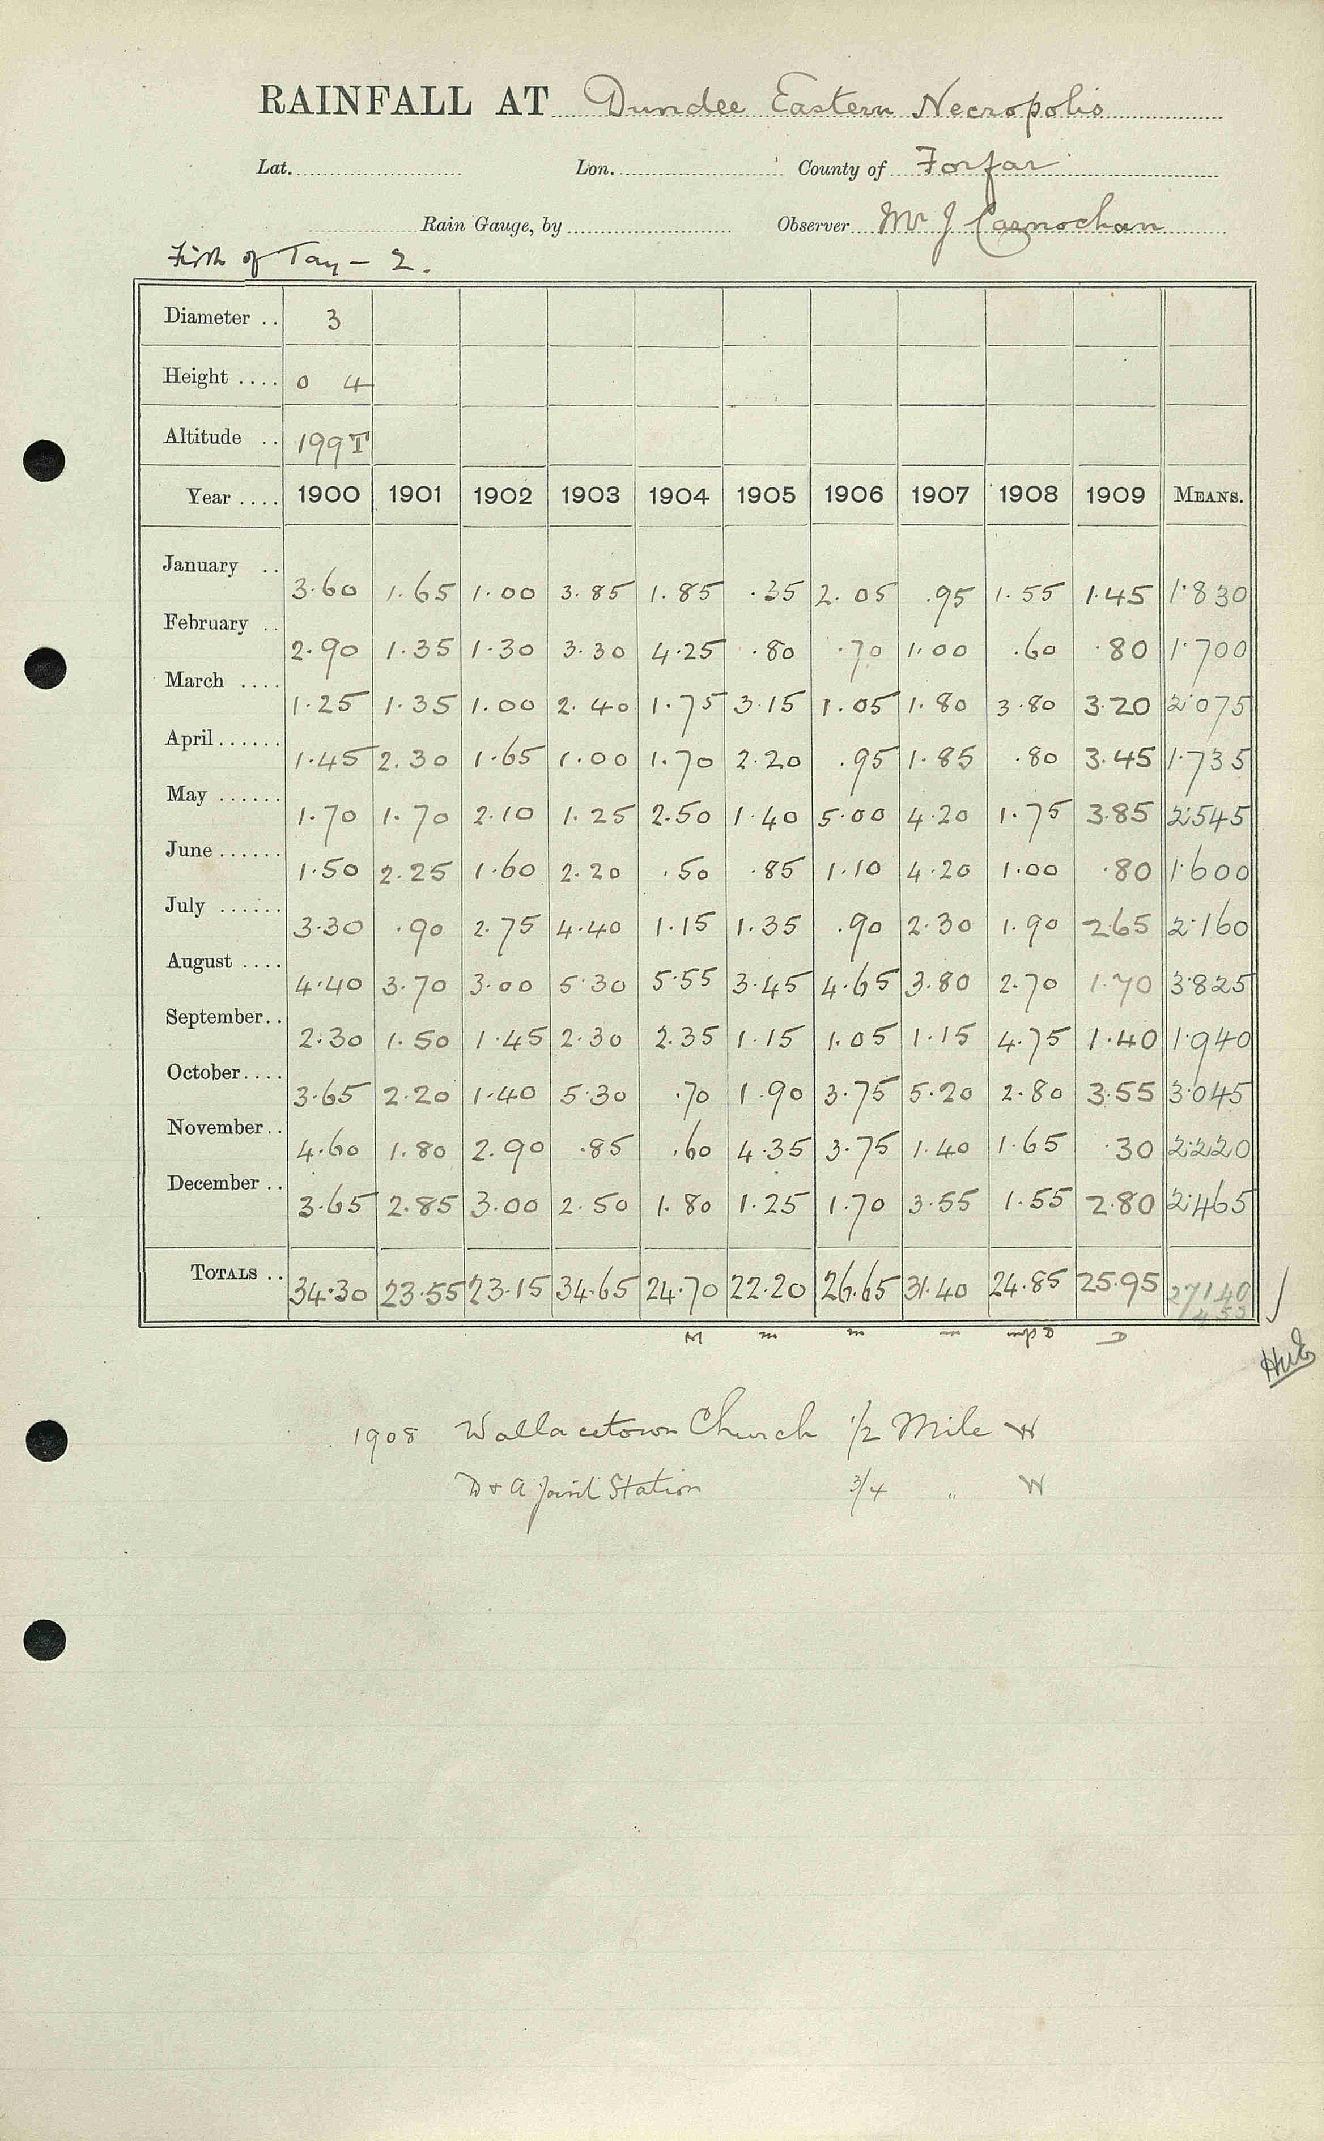 RAINFALL AT Dundee Eastern Necropolis
Lat. Lon. County of Forfar
Rain Gauge, by Observer Mr J Carnochan
Firth of Tay - 2.
Diameter .. 3
Height .... 0 4
Altitude .. 199T
Year .... 1900 1901 1902 1903 1904 1905 1906 1907 1908 1909 MEANS.
January .. 3.60 1.65 1.00 3.85 1.85 .35 2.05 .95 1.55 1.45 1.830
February .. 2.90 1.35 1.30 3.30 4.25 .80 .70 1.00 .60 .80 1.700
March .... 1.25 1.35 1.00 2.40 1.75 3.15 1.05 1.80 3.80 3.20 2.075
April ...... 1.45 2.30 1.65 1.00 1.70 2.20 .95 1.85 .80 3.45 1.735
May ...... 1.70 1.70 2.10 1.25 2.50 1.40 5.00 4.20 1.75 3.85 2.545
June ...... 1.50 2.25 1.60 2.20 .50 .85 1.10 4.20 1.00 .80 1.600
July ...... 3.30 .90 2.75 4.40 1.15 1.35 .90 2.30 1.90 2.65 2.160
August .... 4.40 3.70 3.00 5.30 5.55 3.45 4.65 3.80 2.70 1.70 3.825
September .. 2.30 1.50 1.45 2.30 2.35 1.15 1.05 1.15 4.75 1.40 1.940
October .... 3.65 2.20 1.40 5.30 .70 1.90 3.75 5.20 2.80 3.55 3.045
November .. 4.60 1.80 2.90 .85 .60 4.35 3.75 1.40 1.65 .30 2.220
December .. 3.65 2.85 3.00 2.50 1.80 1.25 1.70 3.55 1.55 2.80 2.465
TOTALS .. 34.30 23.55 23.15 34.65 24.70 22.20 26.65 31.40 24.85 25.95 27.140
1908 Wallacetown Church 1/2 Mile W
D & A Joint Station 3/4 " W